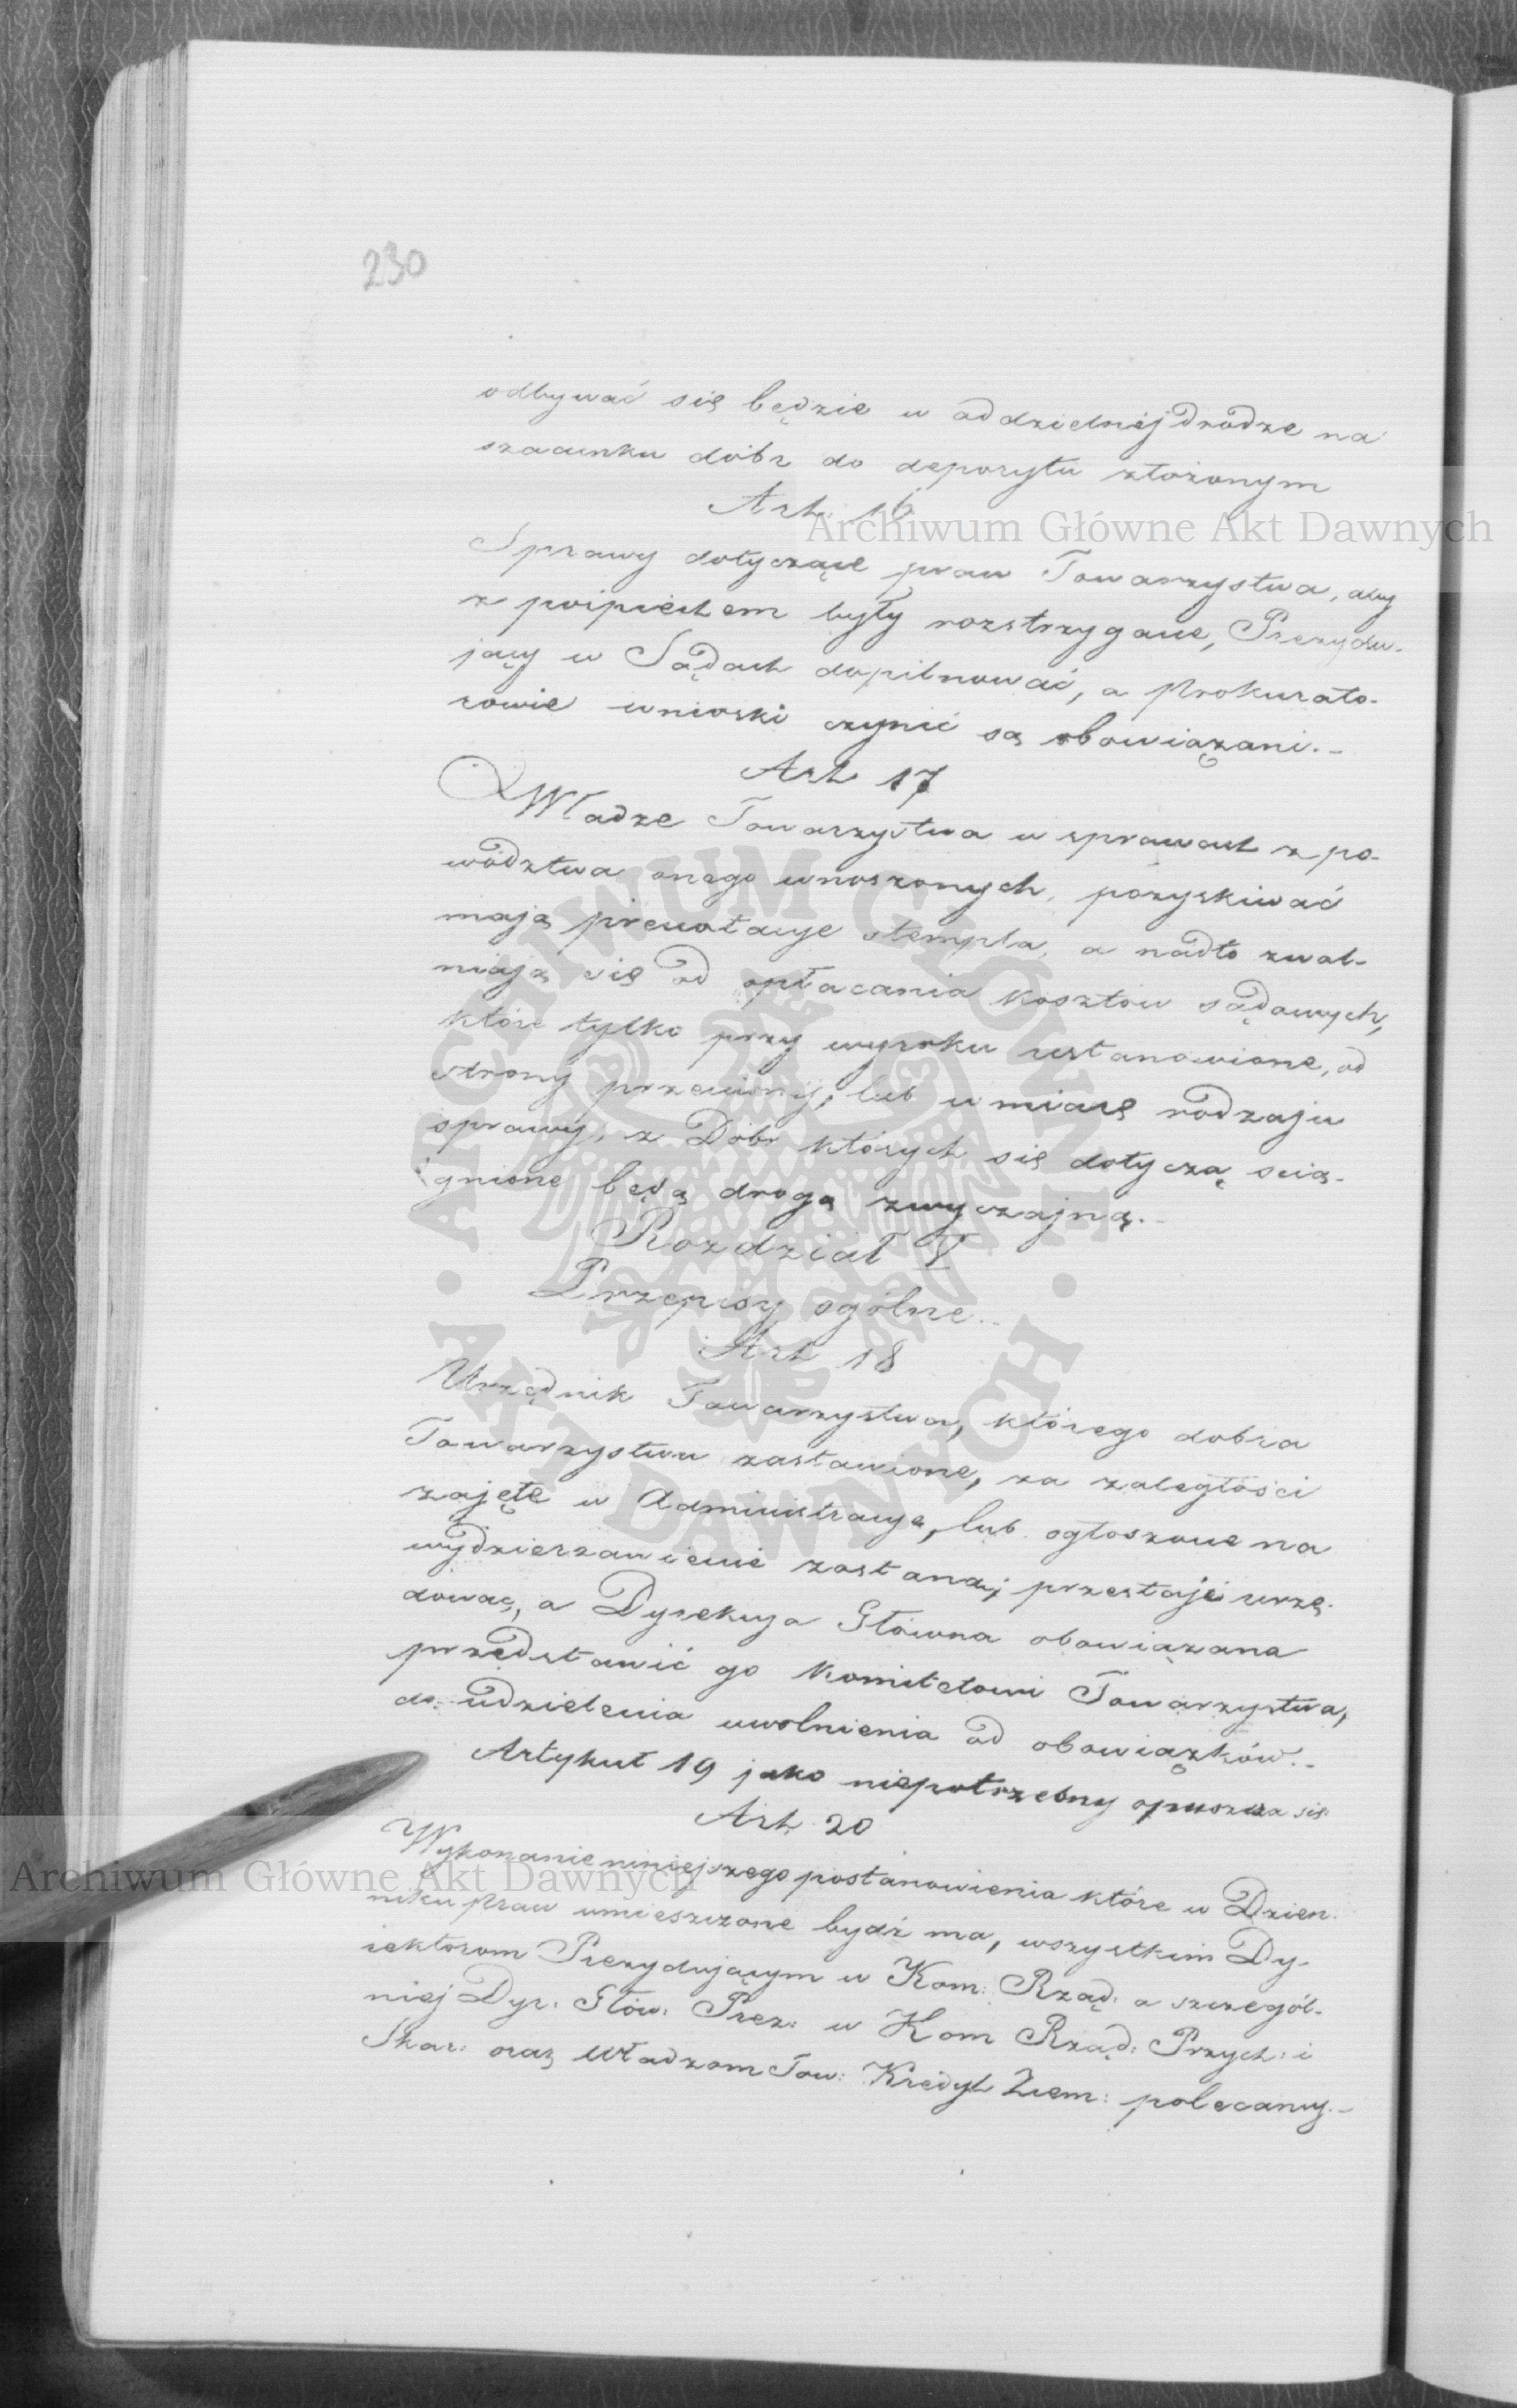 230
odbywać się będzie w oddzielnéj drodze na
szacunku dóbr do depozytu złożonym
Art: 16
Sprawy dotyczące praw Towarzystwa, aby
z pośpiechem były rozstrzygane, Prezydu-
jący w Sądach dopilnować, a Prokurato-
rowie wnioski czynić są obowiązani.-
Art 17
Władze Towarzystwa w sprawach z po-
wództwa onego wnoszonych, pozyskiwać
mają prenotacye stempla, a nadto zwal-
niają się od opłacania kosztów sądowych,
które tylko przy wyroku ustanowione, od
strony przeciwnéj, lub w miarę rodzaju
sprawy, z Dóbr których się dotyczą scią-
gnione będą drogą zwyczajną.-
Rozdział V
Przepisy ogólne.-
Art 18
Urzędnik Towarzystwa, którego dobra
Towarzystwu zastawione, za zaległości
zajęte w Administracyę, lub ogłoszone na
wydzierżawienie zostaną, przestaje urzę-
dować, a Dyrekcya Główna obowiązana
przedstawić go Komitetowi Towarzystwa,
do udzielenia uwolnienia od obowiązków.-
Artykuł 19 jako niepotrzebny opuszcza się
Art 20
Wykonanie niniejszego postanowienia które w Dzien-
niku praw umieszczone bydź ma, wszystkim Dy-
rektorom Prezydującym w Kom: Rząd: a szczegól-
niej Dyr: Głów: Prez: w Kom Rząd: Przych: i
Skar: oraz Władzom Tow: Kredyt Ziem: polecamy.-
Archiwum Główne Akt Dawnych
ARCHIWUM GŁÓWNE AKT DAWNYCH
Archiwum Główne Akt Dawnych